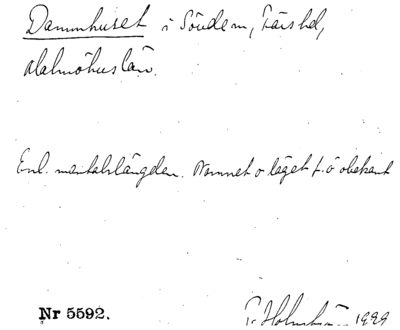 Dammhuset i Söudem, Färs hd,
Malmöhus län.
Enl. mantalslängden. Namnet o läget f. ö obekant
Nr 5592. 1929